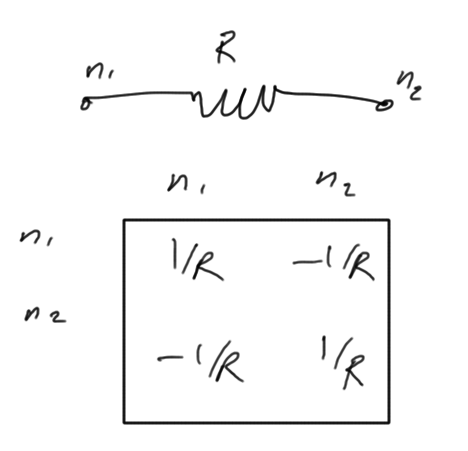 R
n₁ n₂
n₁ n₂
n₁ 1/R -1/R
n₂ -1/R 1/R